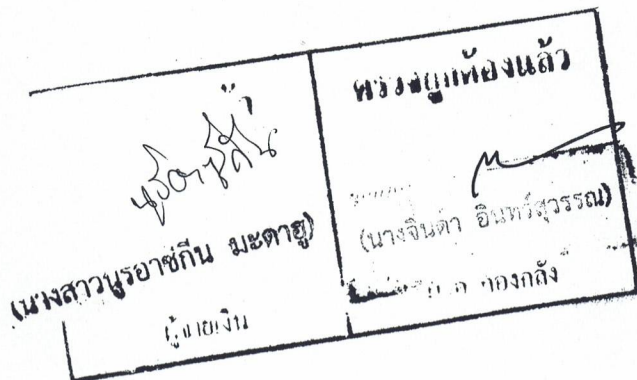 นูรอาซีกีน
(นางสาวนูรอาซีกีน มะดายู)
ผู้จ่ายเงิน
ตรวจถูกต้องแล้ว
(นางจินดา อินทร์สุวรรณ)
กองคลัง